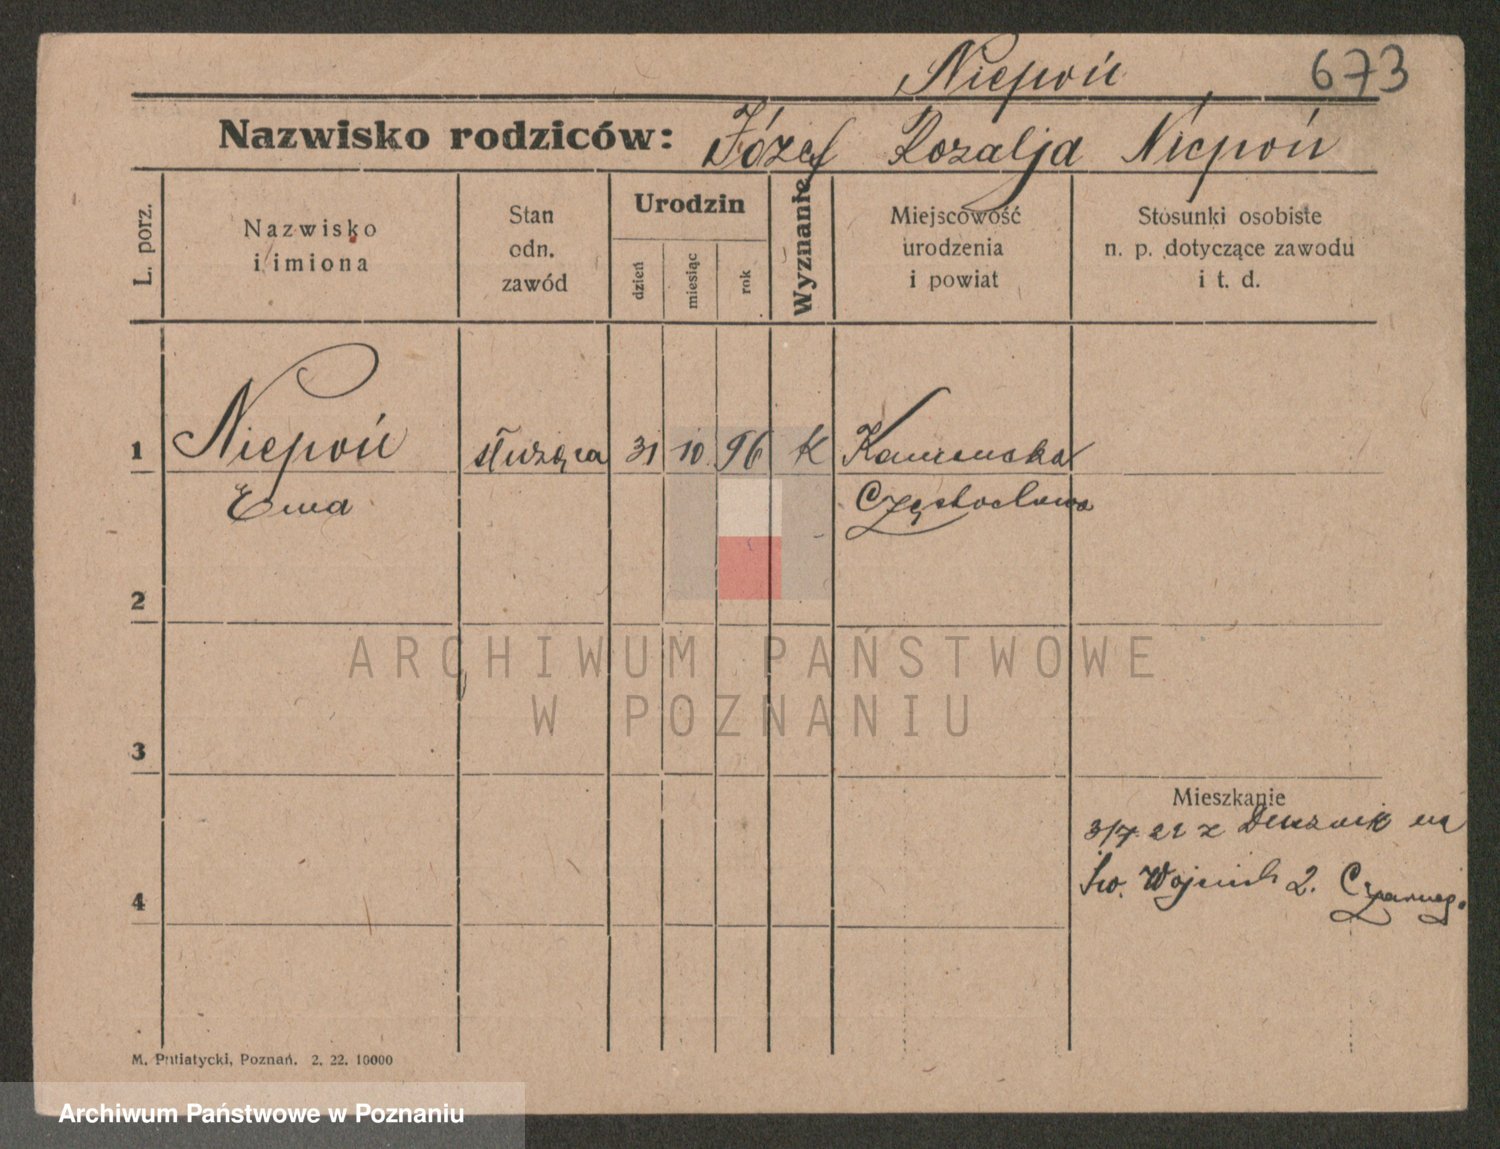 Niepoń 673
Nazwisko rodziców: Józef Rozalja Niepoń
L. porz.
Nazwisko
i imiona
Stan
odn.
zawód
Urodzin
dzień
miesiąc
rok
Wyznanie
Miejscowość
urodzenia
i powiat
Stosunki osobiste
n. p. dotyczące zawodu
i t. d.
1 Niepoń służąca 31 10 96 k Kamenska
Ewa Częstochowa
2
ARCHIWUM PAŃSTWOWE
W POZNANIU
3
Mieszkanie
3/7 22 z Dusznik na
św. Wojciech 2.
4
M. Putiatycki, Poznań. 2. 22. 10000
Archiwum Państwowe w Poznaniu